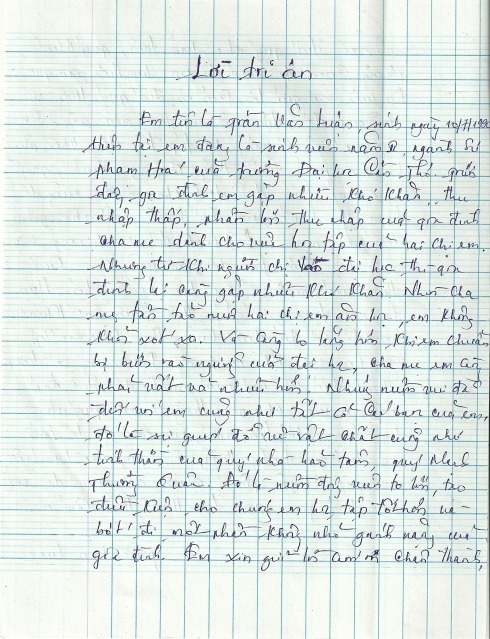 Lời tri ân
Em tên là trần Văn Luận, sinh ngày 10/7/199
Hiện tại em đang là sinh viên năm II, ngành Sư
phạm Hoá của trường Đại học Cần Thơ. trước
đây, gia đình em gặp nhiều khó khăn, thu
nhập thấp, phần lớn thu nhập của gia đình
cha mẹ dành cho việc học tập của hai chị em.
Nhưng từ khi người chị vào đại học thì gia
đình lại càng gặp nhiều khó khăn. Nhìn cha
mẹ tần tảo nuôi hai chị em ăn học, em không
khỏi xót xa. Và càng lo lắng hơn khi em chuẩn
bị bước vào ngưỡng cửa đại học, cha mẹ em càng
phải vất vả nhiều hơn. Nhưng niềm vui đã
đến với em cũng như tất cả các bạn của em,
đó là sự giúp đỡ về vật chất cũng như
tinh thần của quý nhà hảo tâm, quý Mạnh
Thường Quân. Đó là niềm động viên to lớn, tạo
điều kiện cho chúng em học tập tốt hơn và
bớt đi một phần không nhỏ gánh nặng của
gia đình. Em xin gửi lời cám ơn chân thành,